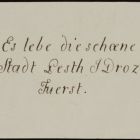 Es lebe die schoene
Stadt Pesth J Droz
Fuerst.